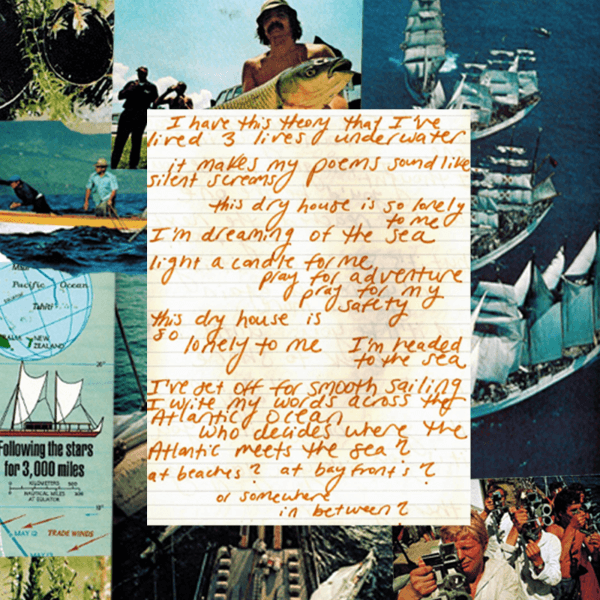 I have this theory that I've
lived 3 lives underwater
it makes my poems sound like
silent screams
this dry house is so lonely
to me
I'm dreaming of the sea
light a candle for me
pray for adventure
pray for my
safety
this dry house is
so
lonely to me I'm headed
to the sea
I've set off for smooth sailing
I write my words across the
Atlantic Ocean
who decides where the
Atlantic meets the sea?
at beaches? at bay front's?
or somewhere
in between?
Pacific Ocean
Tahiti
NEW
ZEALAND
20°
Following the stars
for 3,000 miles
0 KILOMETERS 500
0 NAUTICAL MILES
AT EQUATOR
MAY 12 TRADE WINDS